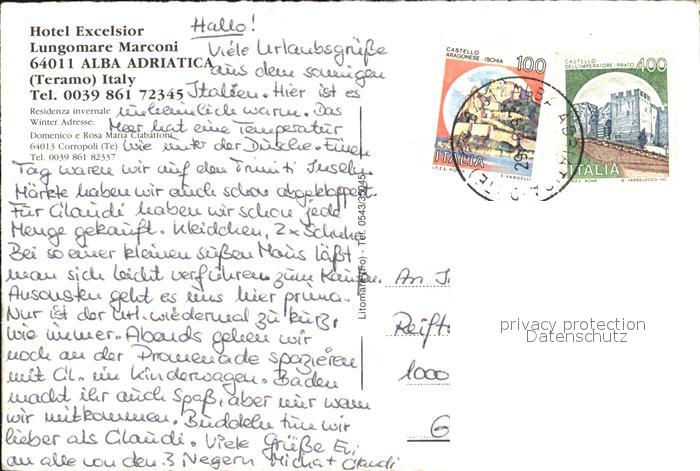 Hallo!
Hotel Excelsior
Lungomare Marconi
64011 ALBA ADRIATICA
(Teramo) Italy
Tel. 0039 861 72345
Residenza invernale
Winter Adresse:
Domenico e Rosa Maria Ciabattoni
64013 Corropoli (Te)
Tel. 0039 861 82337
Viele Urlaubsgrüße
aus dem sonnigen
Italien. Hier ist es
unheimlich warm. Das
Meer hat eine Temperatur
wie unter der Dusche. Einen
Tag waren wir auf den Trimiti Inseln.
Märkte haben wir auch schon abgeklappert.
Für Claudi haben wir schon jede
Menge gekauft. Kleidchen, 2x Schuhe.
Bei so einer kleinen süßen Maus läßt
man sich leicht verführen zum Kaufen.
Ansonsten geht es uns hier prima.
Nur ist der Url. wiedermal zu kurz,
wie immer. Abends gehen wir
noch an der Promenade spazieren
mit Cl. im Kinderwagen. Baden
macht ihr auch Spaß, aber nur wenn
wir mitkommen. Buddeln tun wir
lieber als Claudi. Viele Grüße Evi
an alle von den 3 Negern Micha + Claudi
Litomare (Fo) - Tel. 0543/
CASTELLO
ARAGONESE - ISCHIA
100
ITALIA
CASTELLO
DELL'IMPERATORE - PRATO
400
ITALIA
I.P.Z.S. ROMA
An
1000
privacy protection
Datenschutz